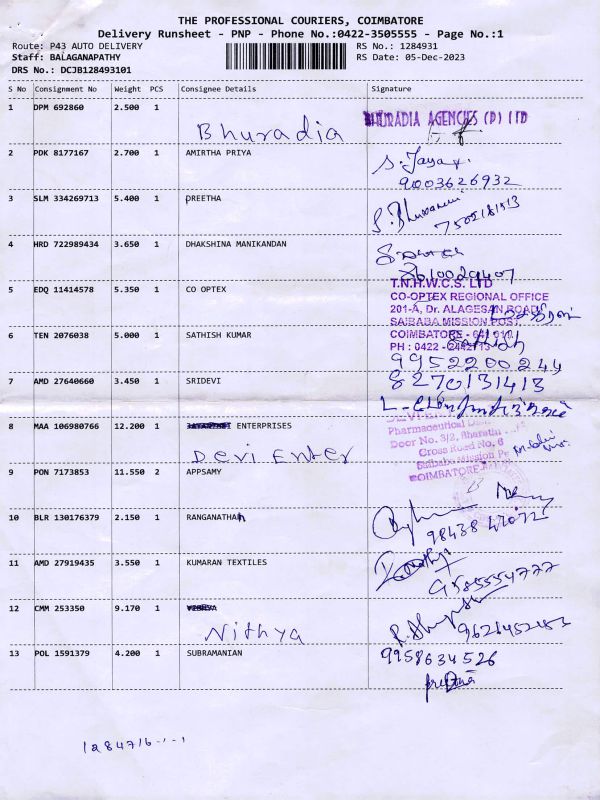 THE PROFESSIONAL COURIERS, COIMBATORE
Delivery Runsheet - PNP - Phone No.:0422-3505555 - Page No.:1
Route: P43 AUTO DELIVERY RS No.: 1284931
Staff: BALAGANAPATHY RS Date: 05-Dec-2023
DRS No.: DCJB128493101
S No Consignment No Weight PCS Consignee Details Signature
1 DPM 692860 2.500 1 BHURADIA AGENCIES (P) LTD
Bhuradia
2 PDK 8177167 2.700 1 AMIRTHA PRIYA
9003626932
3 SLM 334269713 5.400 1 PREETHA
4 HRD 722989434 3.650 1 DHAKSHINA MANIKANDAN
5 EDQ 11414578 5.350 1 CO OPTEX
T.N.H.W.C.S. LTD
CO-OPTEX REGIONAL OFFICE
201-A, Dr. ALAGESAN ROAD
SAIBABA MISSION POST,
COIMBATORE - 641 011
PH : 0422 -
6 TEN 2076038 5.000 1 SATHISH KUMAR
Sathish
9952200244
7 AMD 27640660 3.450 1 SRIDEVI
8270131413
8 MAA 106980766 12.200 1 ENTERPRISES
Devi Enter
Pharmaceutical
Door No. 3/2, Bharathi
Cross Road No. 6
Saibaba Mission
COIMBATORE
9 PON 7173853 11.550 2 APPSAMY
10 BLR 130176379 2.150 1 RANGANATHAN
11 AMD 27919435 3.550 1 KUMARAN TEXTILES
9585554777
12 CMM 253350 9.170 1
Nithya
13 POL 1591379 4.200 1 SUBRAMANIAN
9958634526